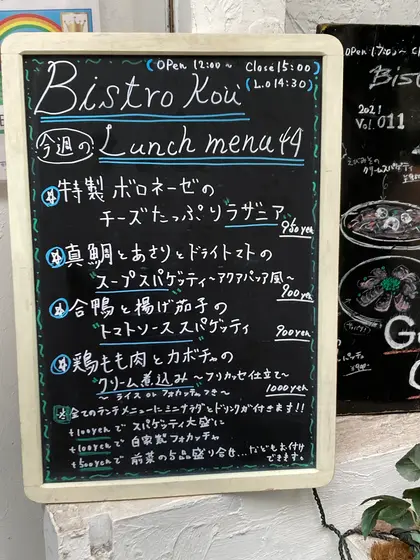 (OPen 12:00~ Close 15:00)
(L.O 14:30)
Bistro Kou
今週の Lunch menu
特製 ボロネーゼの
チーズたっぷりラザニア
980yen
真鯛とあさりとドライトマトの
スープスパゲッティ~アクアパッツァ風~
900yen
合鴨と揚げ茄子の
トマトソーススパゲッティ
900yen
鶏もも肉とカボチャの
クリーム煮込み ~フリカッセ仕立て~
ライス or フォカッチャつき~
1000yen
全てのランチメニューにミニサラダとドリンクが付きます!!
+100yenで スパゲッティ大盛に
+100yenで 自家製フォカッチャ
+500yenで 前菜の5品盛り合せ...などもお付け
できます。
OPen 17:00~
Bis
2021
Vol.011
クリームスパゲティ
G